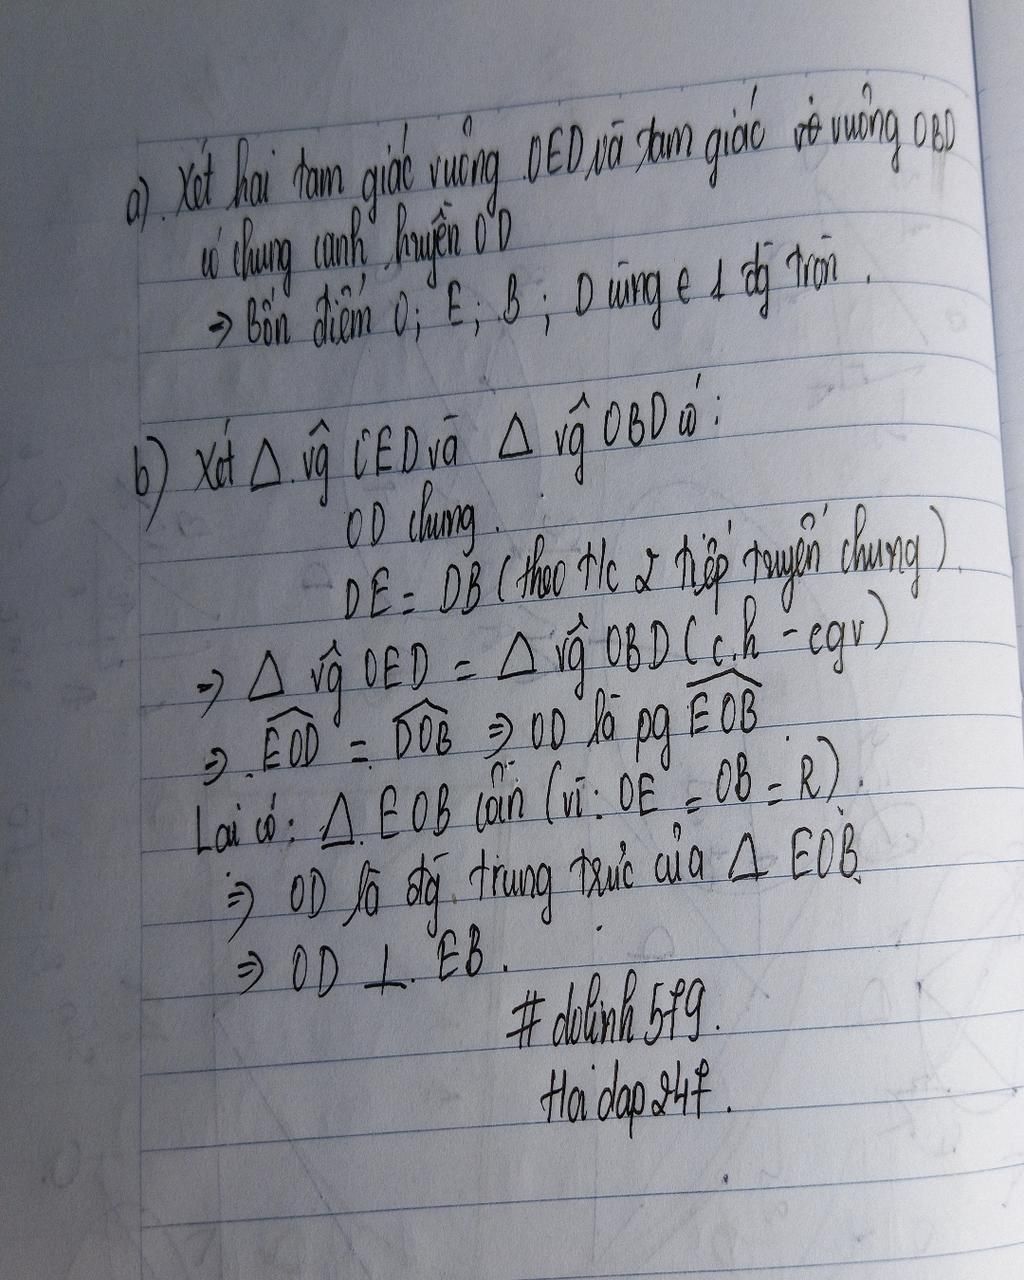 a). Xét hai tam giác vuông OED và tam giác vuông OBD
có chung cạnh huyền OD
=> Bốn điểm O; E; B; D cùng ∈ 1 đg tròn.
b) Xét Δ vg OED và Δ vg OBD có:
OD chung.
DE = DB (theo t/c 2 tiếp tuyến chung)
=> Δ vg OED = Δ vg OBD (c.h - cgv)
=> \widehat{EOD} = \widehat{DOB} => OD là pg \widehat{EOB}
Lại có: Δ EOB cân (vì: OE = OB = R).
=> OD là đg trung trực của Δ EOB
=> OD ⊥ EB.
# dolinh579.
Hoidap247.